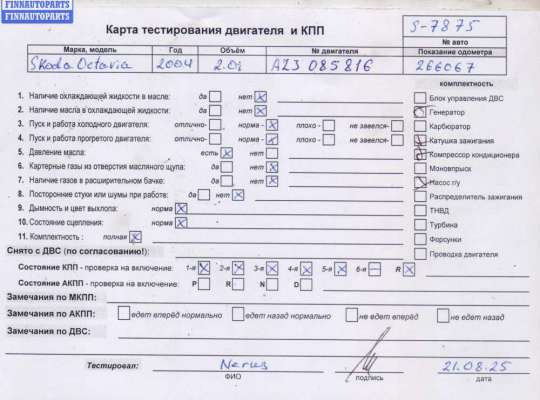 FINNAUTOPARTS
FINNAUTOPARTS
FINNAUTOPARTS
Карта тестирования двигателя и КПП
S-7875
№ авто
Марка, модель Год Объём № двигателя Показание одометра
Skoda Octavia 2004 2.0i AZJ 085816 266067
комплектность
1. Наличие охлаждающей жидкости в масле: да нет x
Блок управления ДВС
2. Наличие масла в охлаждающей жидкости: да нет x
Генератор
3. Пуск и работа холодного двигателя: отлично- норма - x плохо - не завелся-
Карбюратор
4. Пуск и работа прогретого двигателя: отлично- норма - x плохо - не завелся-
Катушка зажигания
5. Давление масла: есть x нет
Компрессор кондиционера
6. Картерные газы из отверствия масляного щупа: да нет x
Моновпрыск
7. Наличие газов в расширительном бачке: да нет x
Насос г/у
8. Посторонние стуки или шумы при работе: да нет x
Распределитель зажигания
9. Дымность и цвет выхлопа: норма x
ТНВД
10. Состояние сцепления: норма x
Турбина
11. Комплектность : полная x
Форсунки
Снято с ДВС (по согласованию!):
Проводка двигателя
Состояние КПП - проверка на включение: 1-я x 2-я x 3-я x 4-я x 5-я x 6-я - R x
Состояние АКПП - проверка на включение: P R N D
Замечания по МКПП:
Замечания по АКПП: едет вперёд нормально едет назад нормально не едет вперёд не едет назад
Замечания по ДВС:
Тестировал: 21.08.25
ФИО подпись дата